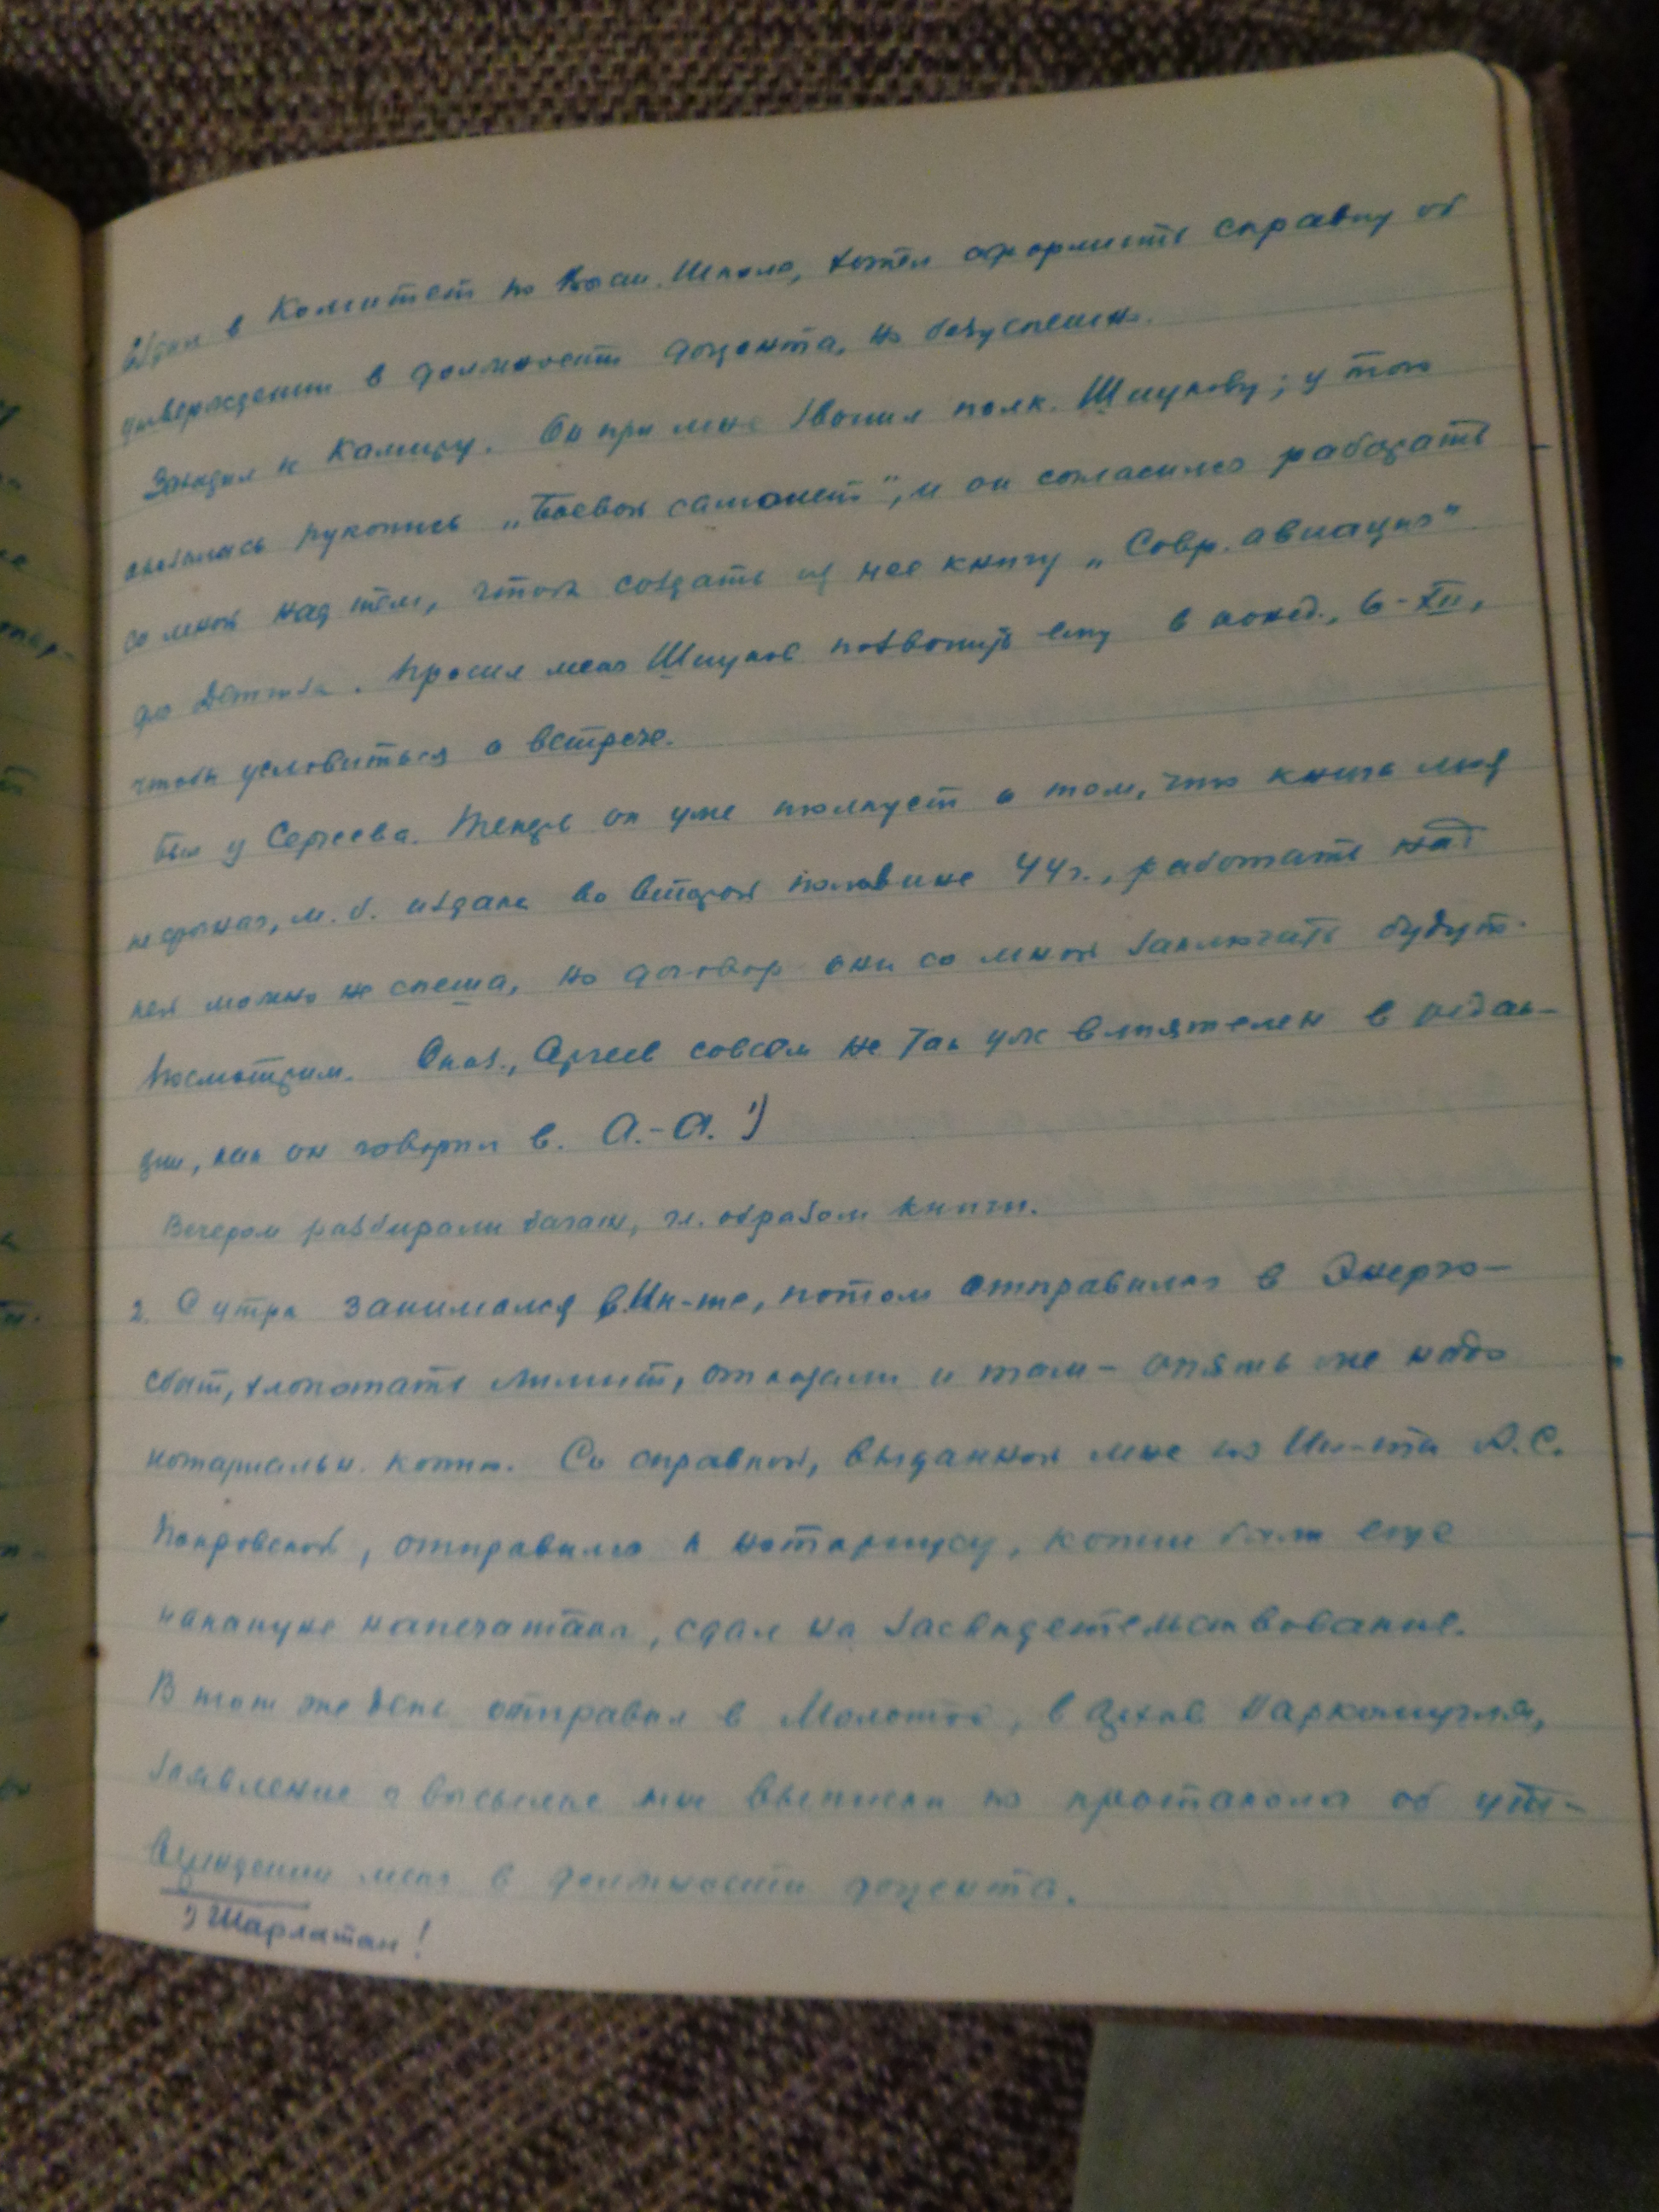 Ездил в Комитет по Высш. Школе, хотел оформить справку об
утверждении в должности доцента, но безуспешно.
Заходил к Камиру. Он при мне звонил полк. Шиукову; у того
оказалась рукопись „Боевой самолет", и он согласился работать
со мной над тем, чтобы создать из нее книгу „Совр. авиация"
для Детгиза. Просил меня Шиуков позвонить ему в понед., 6-XII,
чтобы условиться о встрече.
Был у Сергеева. Теперь он уже толкует о том, что книга моя
не срочная, м. б. издана во второй половине 44 г., работать над
ней можно не спеша, но договор они со мной заключать будут.
Посмотрим. Оказ., Сергеев совсем не так уж влиятелен в редак-
ции, как он говорил в. А.-А. ¹)
Вечером разбирали багаж, гл. образом книги.
2. С утра занимался в Ин-те, потом отправился в Энерго-
сбыт, хлопотать лимит, отказали и там – опять же надо
нотариальн. копию. Со справкой, выданной мне из Ин-та А. С.
Покровской, отправился к нотариусу, копии были еще
накануне напечатаны, сдал на засвидетельствование.
В тот же день отправил в Молотов, в архив Наркомугля,
заявление о высылке мне выписки из протокола об утв-
ерждении меня в должности доцента.
¹) Шарлатан!